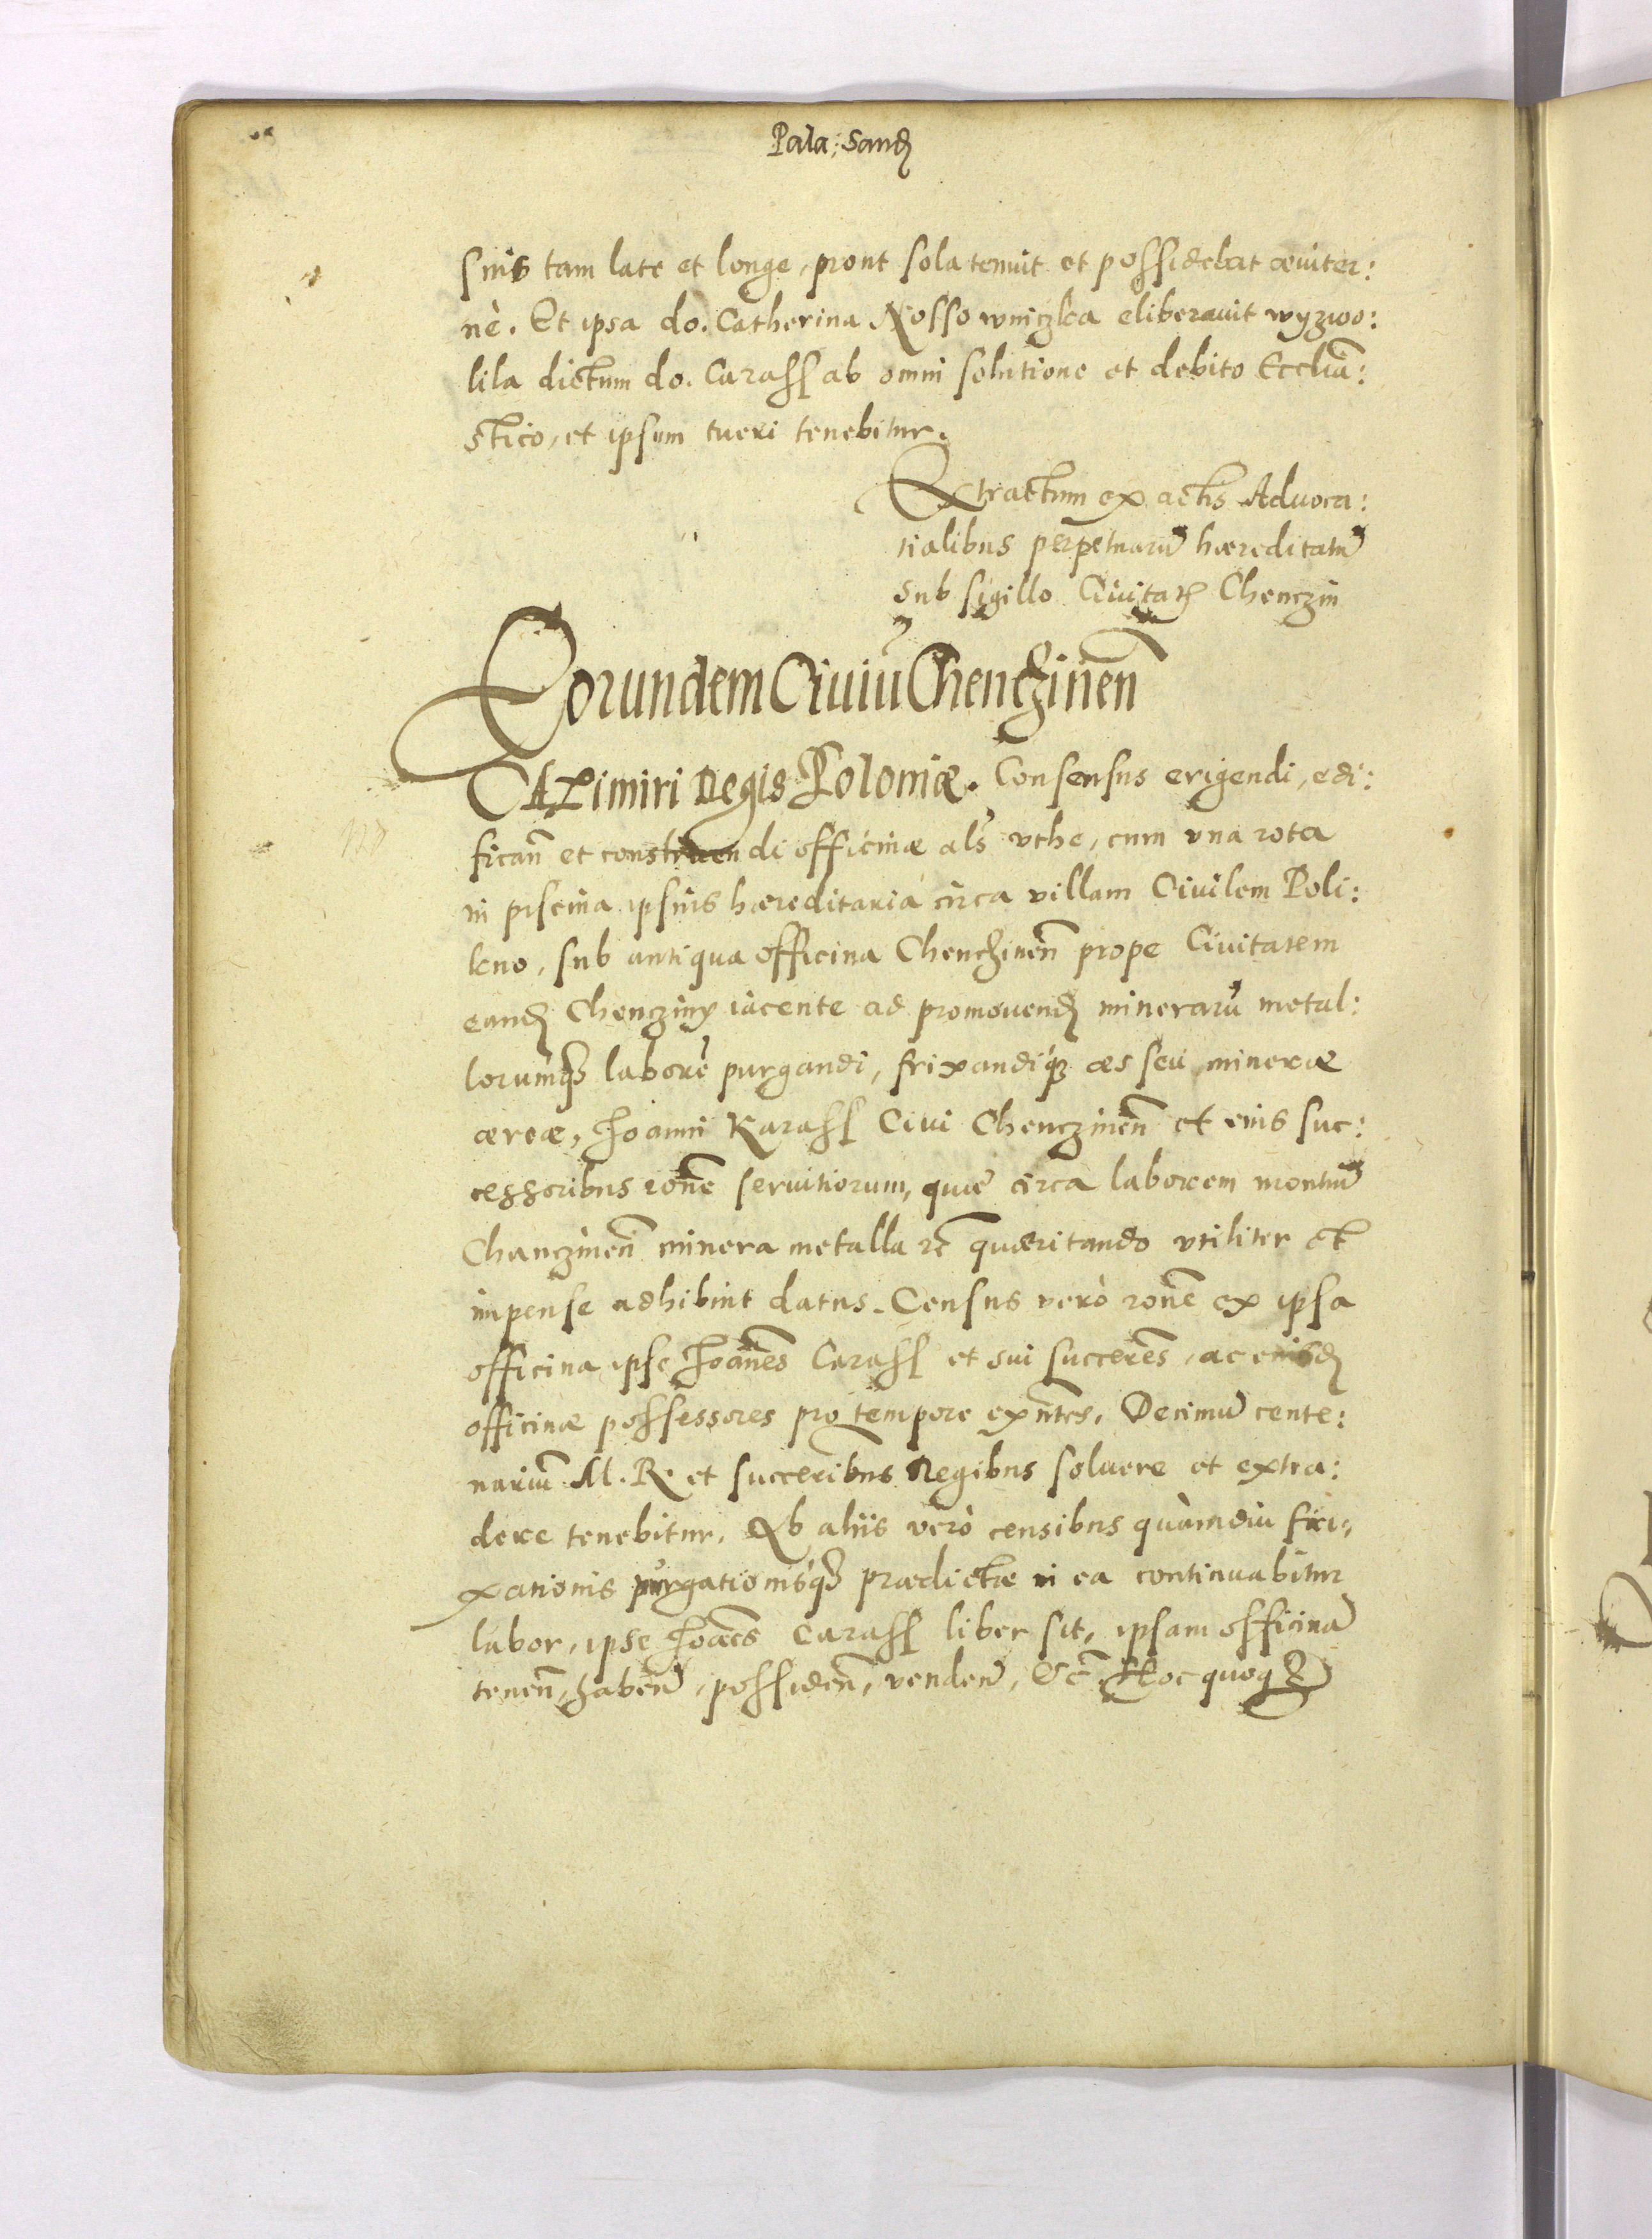 Pala: Sand
suis tam late et longe, prout sola tenuit et possidebat æuiter:
nè. Et ipsa do. Catherina Nossowniczka eliberauit wyzwo:
lila dictum do. Carassſ ab omni solutione et debito Eccliã:
stico, et ipsum tueri tenebitur.
Extractum ex actis Aduoca:
tialibus perpetuarũ hæreditatũ
sub sigillo Ciuitatis Chenczin
Eorundem Ciuiũ Chenczineñ
CAzimiri Regis Poloniæ. Consensus erigendi, edi:
ficañ et construendi officinæ als vthe, cum vna rota
in piscina ipsius hæreditaria circa villam Ciuilem Poli:
kno, sub antiqua officina Chenczineñ prope Ciuitatem
eand Chencziny iacente ad promouend minerarũ metal:
lorumq3 laborẽ purgandi, frixandiq3 æs seu mineræ
æreæ, Joanni Karassſ Ciui Chenczineñ et eius suc:
cessoribus rõne seruitiorum, quæ circa laborem montiũ
Chanczineñ minera metalla rc̃ quæritando vtiliter et
impense adhibuit datus. Census verò rõne ex ipsa
officina ipse Joãnes Carassſ et sui succeres, ac eiusd
officinæ possessores pro tempore exñtes, Decimũ cente:
nariũ M. R. et succeribus Regibus soluere et extra:
dere tenebitur. Ab aliis verò censibus quàmdiu fri,,
xationis purgationisq3 prædictæ in ea continuabitur
labor, ipse Joães Carassſ liber sit, ipsam officinã
teneñ, habeñ, possideñ, vendeñ, &c̃. Hoc quoq3